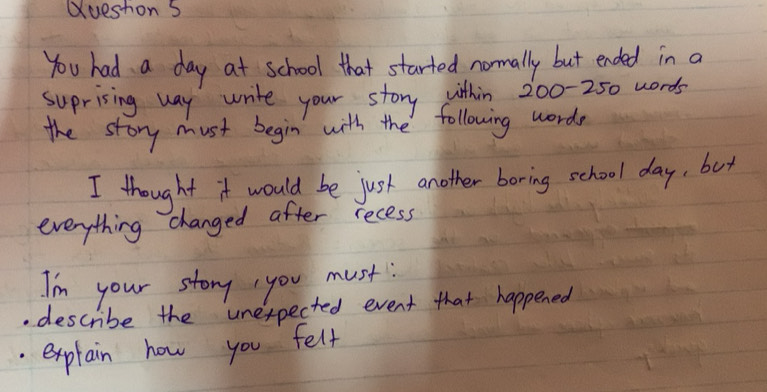 Question 5
You had a day at school that started normally but ended in a
suprising way write your story within 200-250 words
the story must begin with the following words
I thought it would be just another boring school day, but
everything changed after recess
I'm your story, you must:
• describe the unexpected event that happened
• explain how you felt